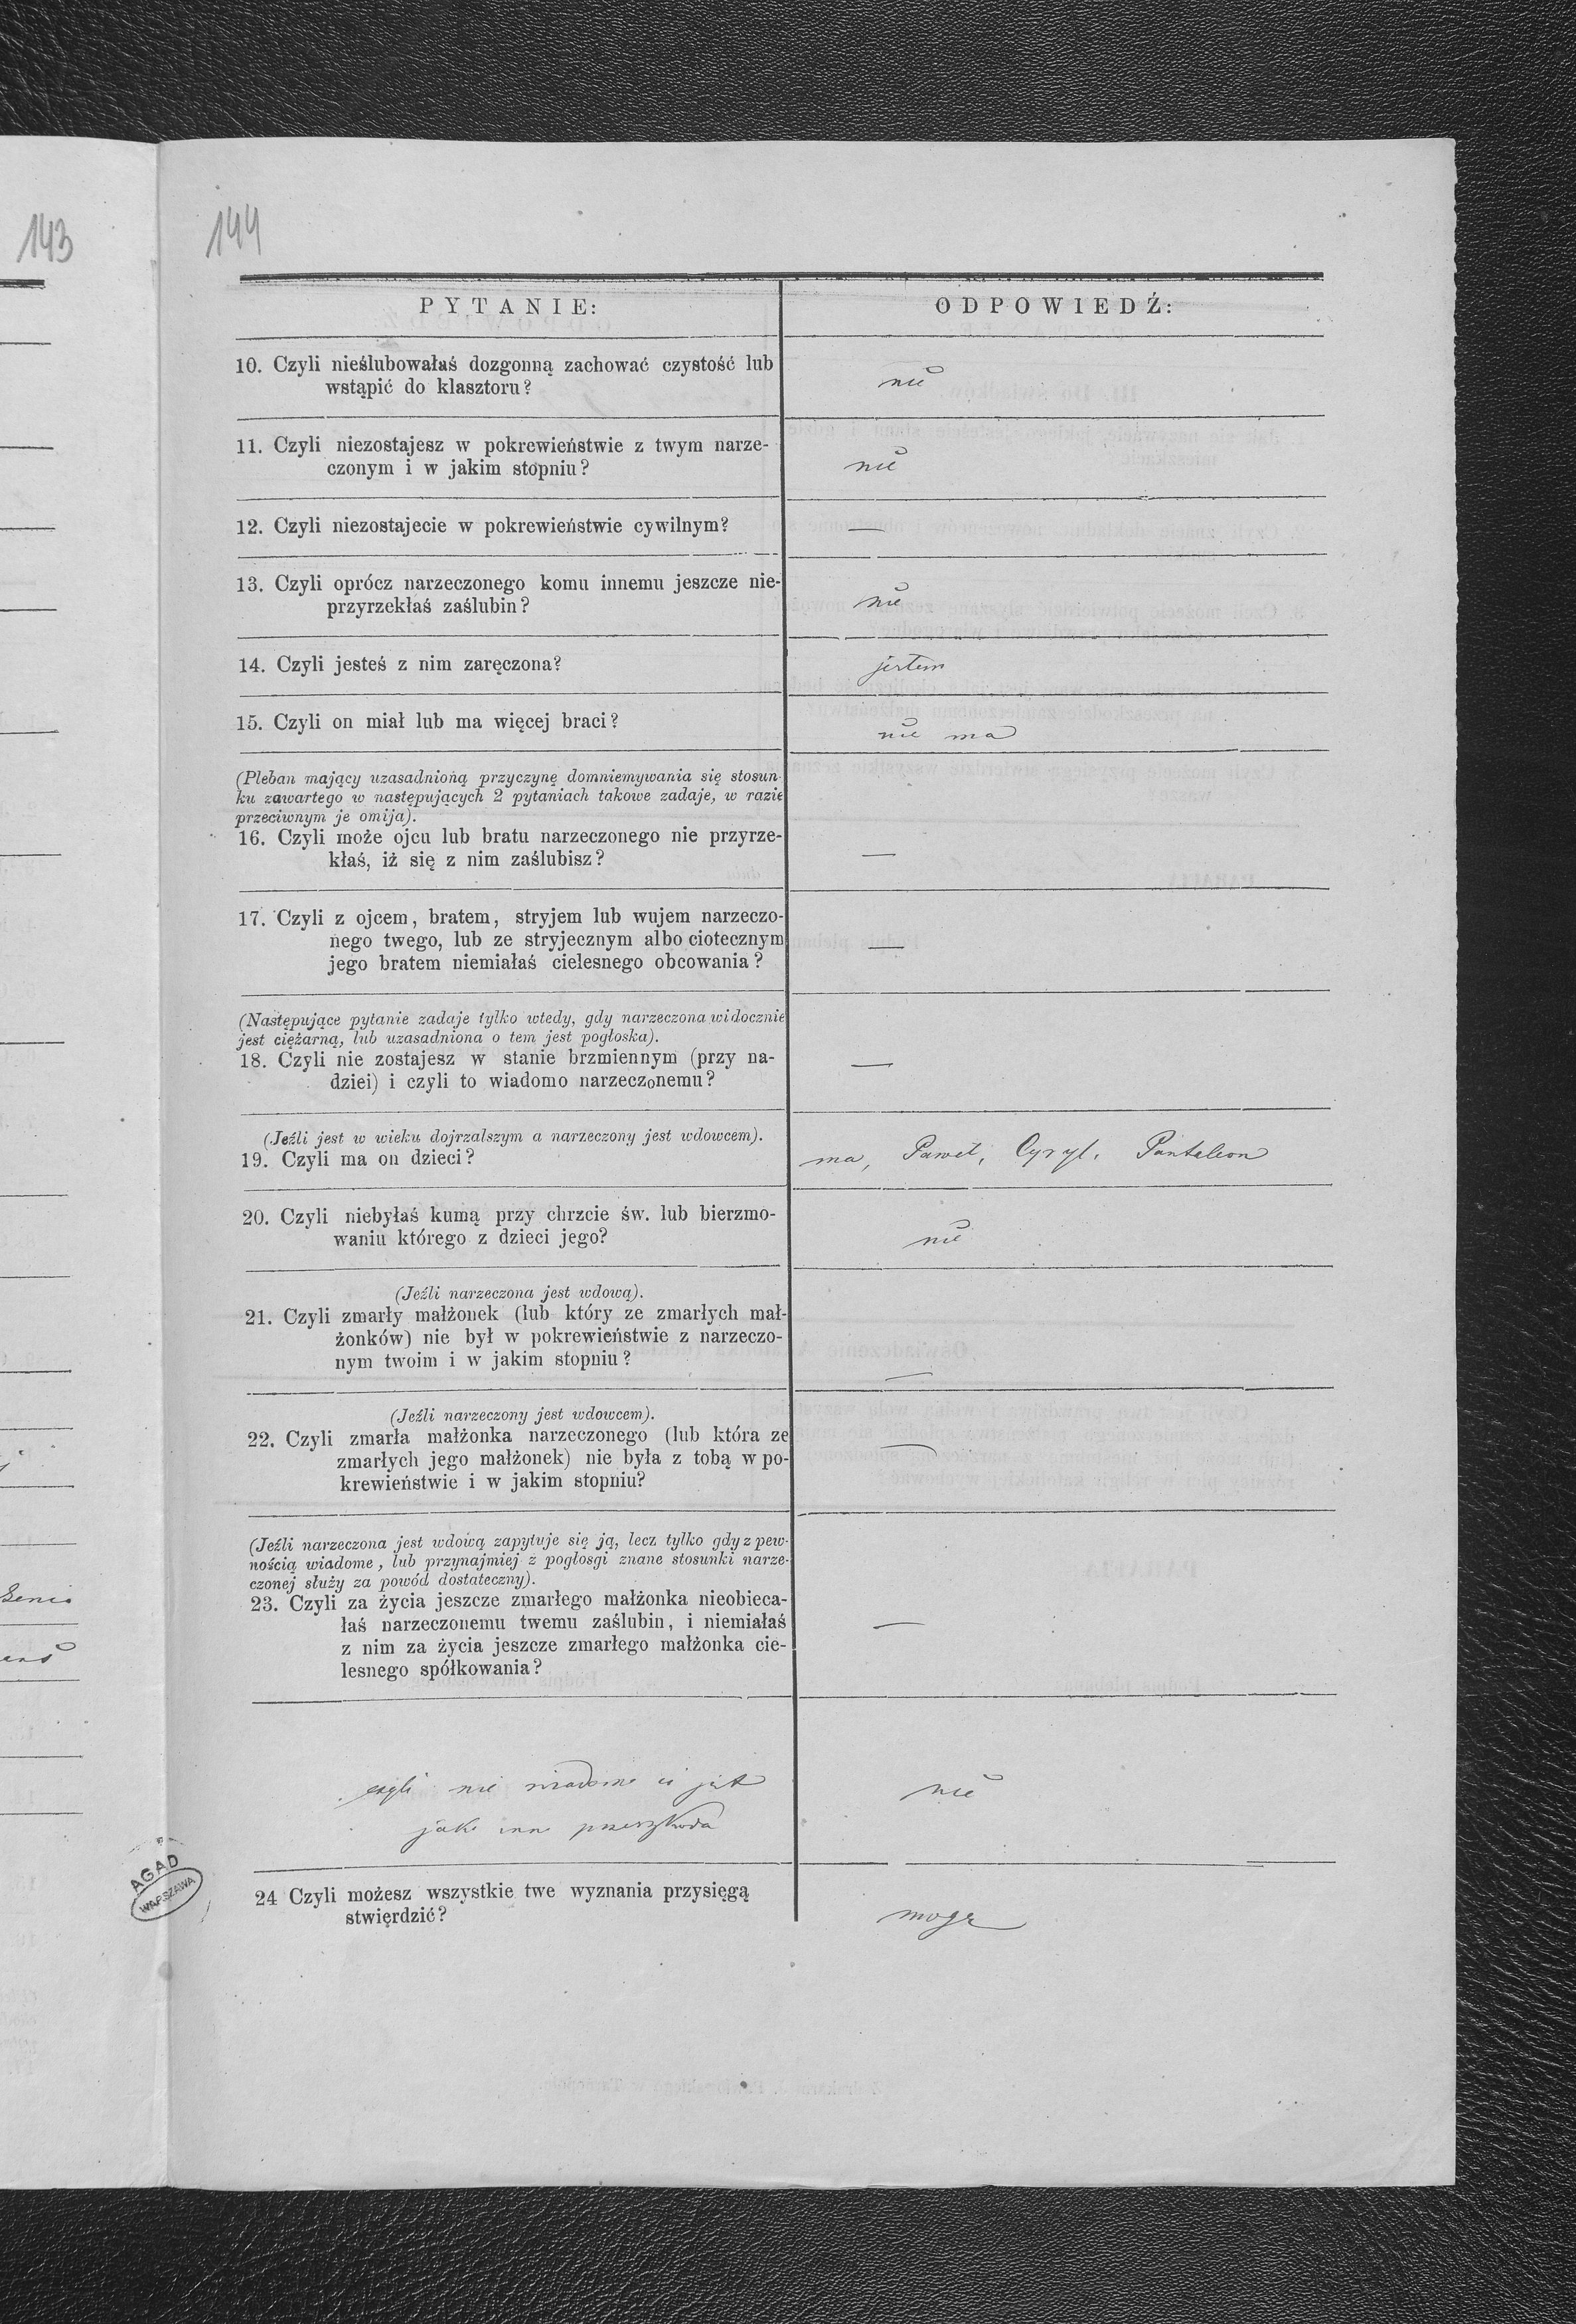 143
144
PYTANIE:
ODPOWIEDŹ:
10. Czyli nieślubowałaś dozgonną zachować czystość lub
wstąpić do klasztoru?
nie
11. Czyli niezostajesz w pokrewieństwie z twym narze-
czonym i w jakim stopniu?
nie
12. Czyli niezostajecie w pokrewieństwie cywilnym?
—
13. Czyli oprócz narzeczonego komu innemu jeszcze nie-
przyrzekłaś zaślubin?
nie
14. Czyli jesteś z nim zaręczona?
jestem
15. Czyli on miał lub ma więcej braci?
nie ma
(Pleban mający uzasadnioną przyczynę domniemywania się stosun-
ku zawartego w następujących 2 pytaniach takowe zadaje, w razie
przeciwnym je omija).
16. Czyli może ojcu lub bratu narzeczonego nie przyrze-
kłaś, iż się z nim zaślubisz?
—
17. Czyli z ojcem, bratem, stryjem lub wujem narzeczo-
nego twego, lub ze stryjecznym albo ciotecznym
jego bratem niemiałaś cielesnego obcowania?
—
(Następujące pytanie zadaje tylko wtedy, gdy narzeczona widocznie
jest ciężarną, lub uzasadniona o tem jest pogłoska).
18. Czyli nie zostajesz w stanie brzmiennym (przy na-
dziei) i czyli to wiadomo narzeczonemu?
—
(Jeźli jest w wieku dojrzalszym a narzeczony jest wdowcem).
19. Czyli ma on dzieci?
ma, Paweł, Cyryl, Pantaleon
20. Czyli niebyłaś kumą przy chrzcie św. lub bierzmo-
waniu którego z dzieci jego?
nie
(Jeźli narzeczona jest wdową).
21. Czyli zmarły małżonek (lub który ze zmarłych mał-
żonków) nie był w pokrewieństwie z narzeczo-
nym twoim i w jakim stopniu?
—
(Jeźli narzeczony jest wdowcem).
22. Czyli zmarła małżonka narzeczonego (lub która ze
zmarłych jego małżonek) nie była z tobą w po-
krewieństwie i w jakim stopniu?
—
(Jeźli narzeczona jest wdową zapytuje się ją, lecz tylko gdy z pew-
nością wiadome, lub przynajmiej z pogłosgi znane stosunki narze-
czonej służy za powód dostateczny).
23. Czyli za życia jeszcze zmarłego małżonka nieobieca-
łaś narzeczonemu twemu zaślubin, i niemiałaś
z nim za życia jeszcze zmarłego małżonka cie-
lesnego spółkowania?
—
czyli nie wiadome ci jest
jaka inna przeszkoda
nie
24 Czyli możesz wszystkie twe wyznania przysięgą
stwierdzić?
mogę
AGAD
WARSZAWA